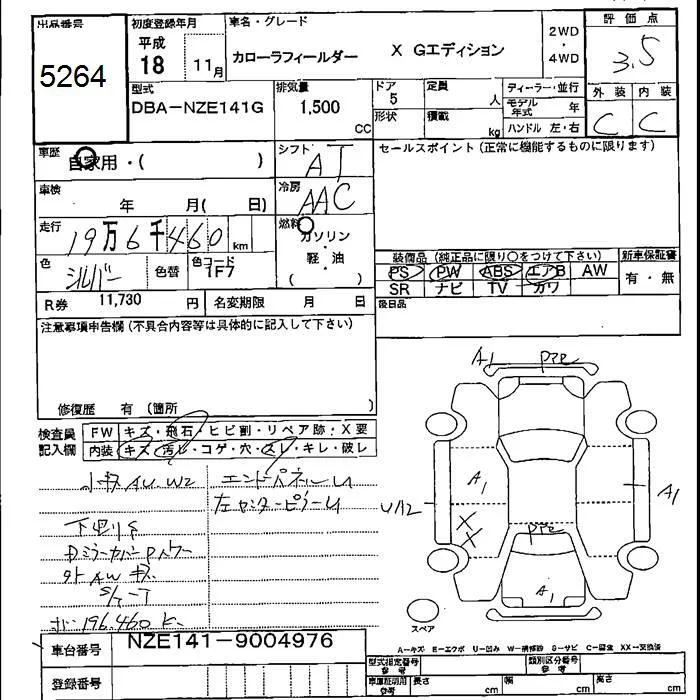 出品番号
5264
初度登録年月
平成
18 11月
車名・グレード
カローラフィールダー X Gエディション
2WD
・
4WD
評価点
3.5
外装 内装
C C
型式
DBA-NZE141G
排気量
1,500
CC
ドア
5
形状
定員
人
積載
kg
ディーラー・並行
モデル年式 年
ハンドル 左・右
車歴
自家用・( )
シフト
AT
セールスポイント(正常に機能するものに限ります)
車検
年 月( 日)
冷房
AAC
走行
19万6千460km
燃料
ガソリン
・
軽・油
( )
色
シルバー
色替
色コード
1F7
装備品(純正品に限り○をつけて下さい)
新車保証書
PS PW ABS エアB AW
有・無
SR ナビ TV カワ
R券 11,730 円
名変期限 月 日
後日品
注意事項申告欄(不具合内容等は具体的に記入して下さい)
修復歴 有 (箇所 )
検査員
記入欄
FW キズ・飛石・ヒビ割・リペア跡・X要
内装 キズ・汚レ・コゲ・穴・スレ・キレ・破レ
小キズAU W2
エンドパネルU
左センターピラーU
下廻りS
DミラーカバーPスワー
外AWキズ
196.460K
A1 pre
A1
U/12
A1
X
X
pre
A1
スペア
A-キズ E-エクボ U-凹み W-補修跡 S-サビ C-腐食 XX-交換済
車台番号
NZE141-9004976
登録番号
型式指定番号
参考
類別区分番号
参考
車庫証明用
参考
長さ cm
幅 cm
高さ cm